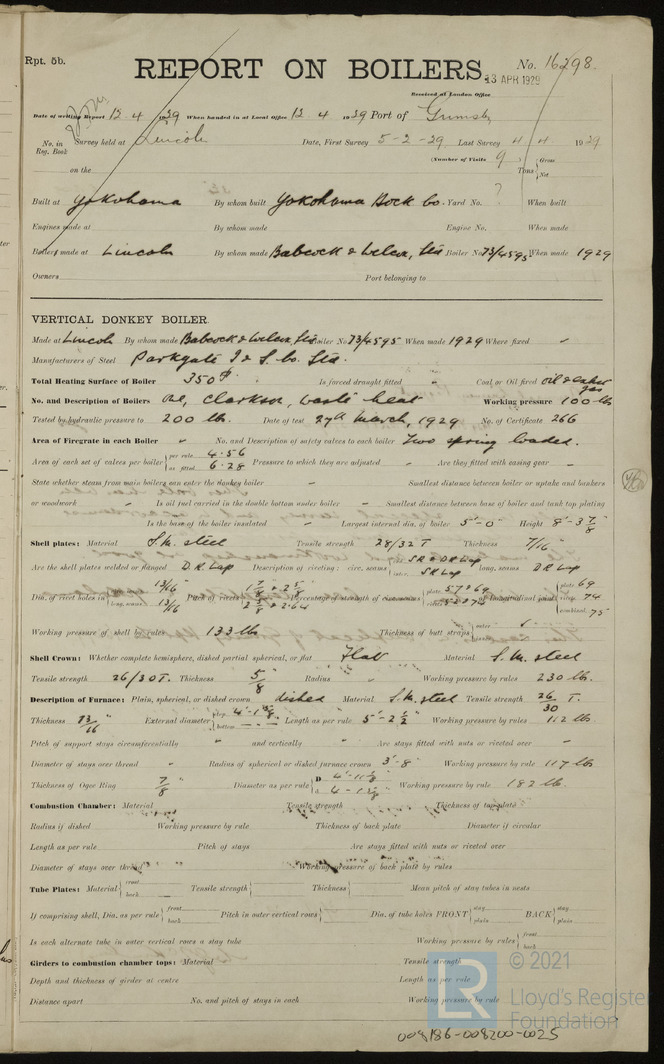 Rpt. 5b.
REPORT ON BOILERS.
No. 16298
13 APR 1929
Received at London Office
Date of writing Report 12 4 1929 When handed in at Local Office 12 4 1929 Port of Grimsby
No. in Reg. Book Survey held at Lincoln Date, First Survey 5-2-29 Last Survey 4 4 1929
(Number of Visits 9)
on the Tons { Gross Net
Built at Yokohama By whom built Yokohama Dock Co. Yard No. ? When built
Engines made at By whom made Engine No. When made
Boilers made at Lincoln By whom made Babcock & Wilcox, Ltd Boiler No. 73/4595 When made 1929
Owners Port belonging to
VERTICAL DONKEY BOILER.
Made at Lincoln By whom made Babcock & Wilcox, Ltd Boiler No. 73/4595 When made 1929 Where fixed -
Manufacturers of Steel Parkgate I & S. Co. Ltd.
Total Heating Surface of Boiler 350 Is forced draught fitted " Coal or Oil fired oil & exhst gas
No. and Description of Boilers One, Clarkson, waste heat Working pressure 100 lb
Tested by hydraulic pressure to 200 lb. Date of test 27th March, 1929 No. of Certificate 266
Area of Firegrate in each Boiler " No. and Description of safety valves to each boiler Two spring loaded.
Area of each set of valves per boiler { per rule 4.56 as fitted 6.28 Pressure to which they are adjusted - Are they fitted with easing gear -
State whether steam from main boilers can enter the donkey boiler - Smallest distance between boiler or uptake and bunkers
or woodwork - Is oil fuel carried in the double bottom under boiler - Smallest distance between base of boiler and tank top plating
Is the base of the boiler insulated " Largest internal dia. of boiler 5'-0" Height 8'-3 7/8
Shell plates: Material S.M. steel Tensile strength 28/32 T Thickness 7/16"
Are the shell plates welded or flanged D R Lap Description of riveting: circ. seams SR & DR Lap inter. SR Lap long. seams DR Lap
Dia. of rivet holes in { 13/16 long. seams 13/16 Pitch of rivets Percentage of strength of circ. seams { plate 57 & 69 Longitudinal joint { plate 69 rivet 74 combined 75
Working pressure of shell by rules 133 lbs Thickness of butt straps { outer
Shell Crown: Whether complete hemisphere, dished partial spherical, or flat Flat Material S.M. steel
Tensile strength 26/30 T. Thickness 5/8" Radius " Working pressure by rules 230 lb.
Description of Furnace: Plain, spherical, or dished crown dished Material S.M. steel Tensile strength 26/30 T.
Thickness 13/16" External diameter { top bottom Length as per rule 5'-2 1/2" Working pressure by rules 112 lb
Pitch of support stays circumferentially " and vertically " Are stays fitted with nuts or riveted over -
Diameter of stays over thread " Radius of spherical or dished furnace crown 3'-8" Working pressure by rule 117 lb
Thickness of Ogee Ring 7/8" Diameter as per rule { D d Working pressure by rule 182 lb.
Combustion Chamber: Material Tensile strength Thickness of top plate
Radius if dished Working pressure by rule Thickness of back plate Diameter if circular
Length as per rule Pitch of stays Are stays fitted with nuts or riveted over
Diameter of stays over thread Working pressure of back plate by rules
Tube Plates: Material { front back Tensile strength { Thickness { Mean pitch of stay tubes in nests
If comprising shell, Dia. as per rule { front back Pitch in outer vertical rows { Dia. of tube holes FRONT { stay plain BACK { stay plain
Is each alternate tube in outer vertical rows a stay tube Working pressure by rules { front back
Girders to combustion chamber tops: Material Tensile strength
Depth and thickness of girder at centre Length as per rule
Distance apart No. and pitch of stays in each Working pressure by rule
LR © 2021
Lloyd's Register
Foundation
008186-008200-0025